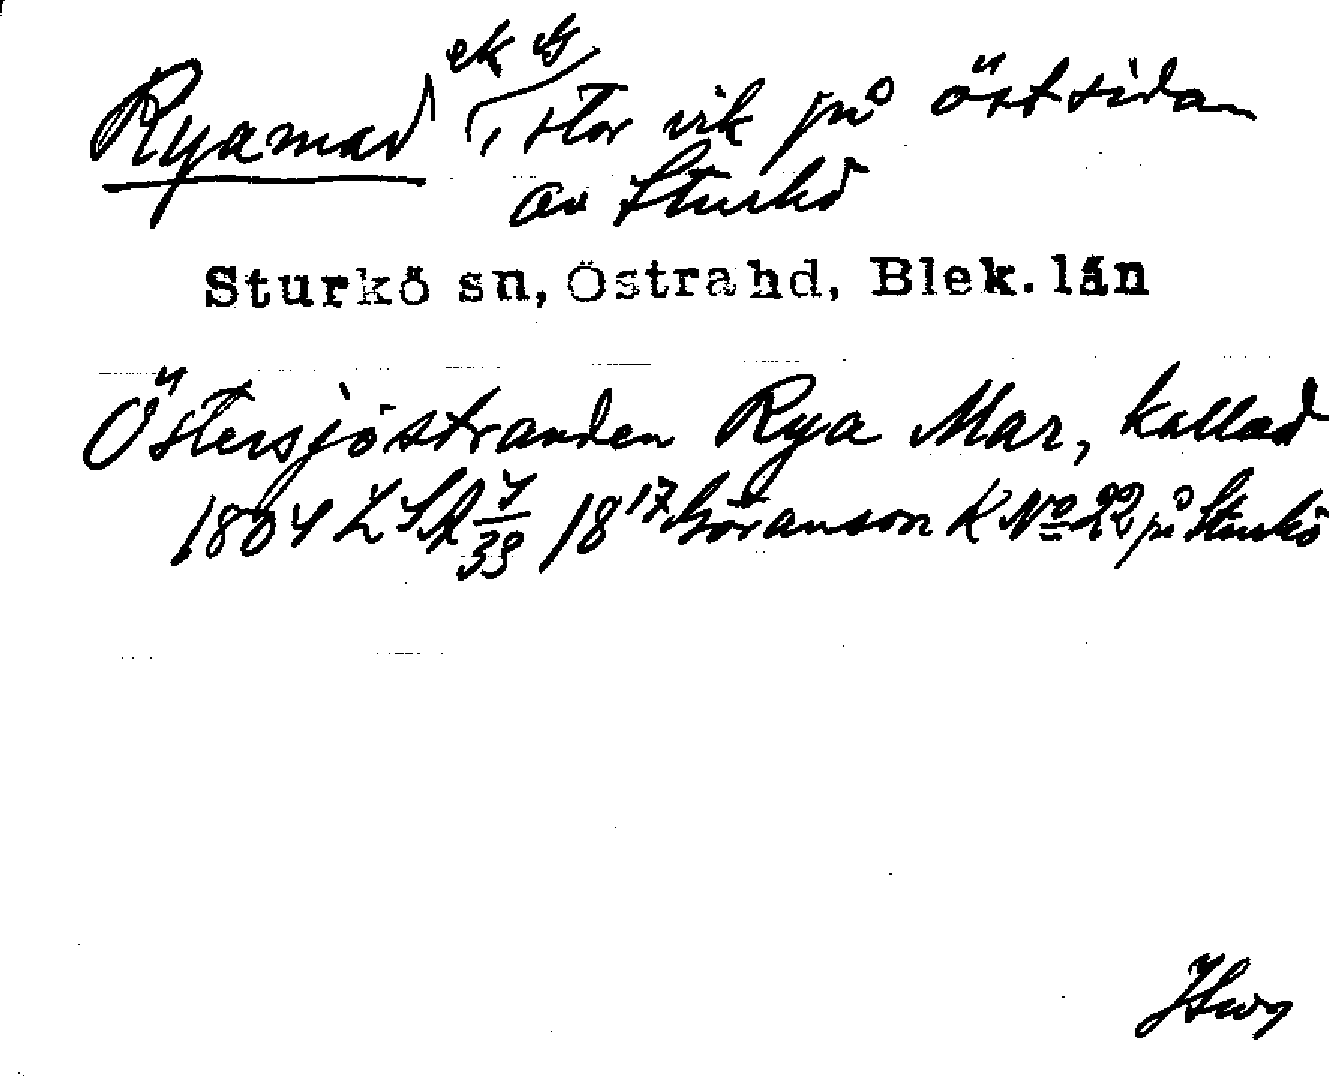 ek G
Ryamad, stor vik på östsidan
av Sturkö
Sturkö sn, Östra hd, Blek. län
Östersjöstranden Rya Mar, kallad
1804 LSA 18 17 Göranson K No 22 på Sturkö